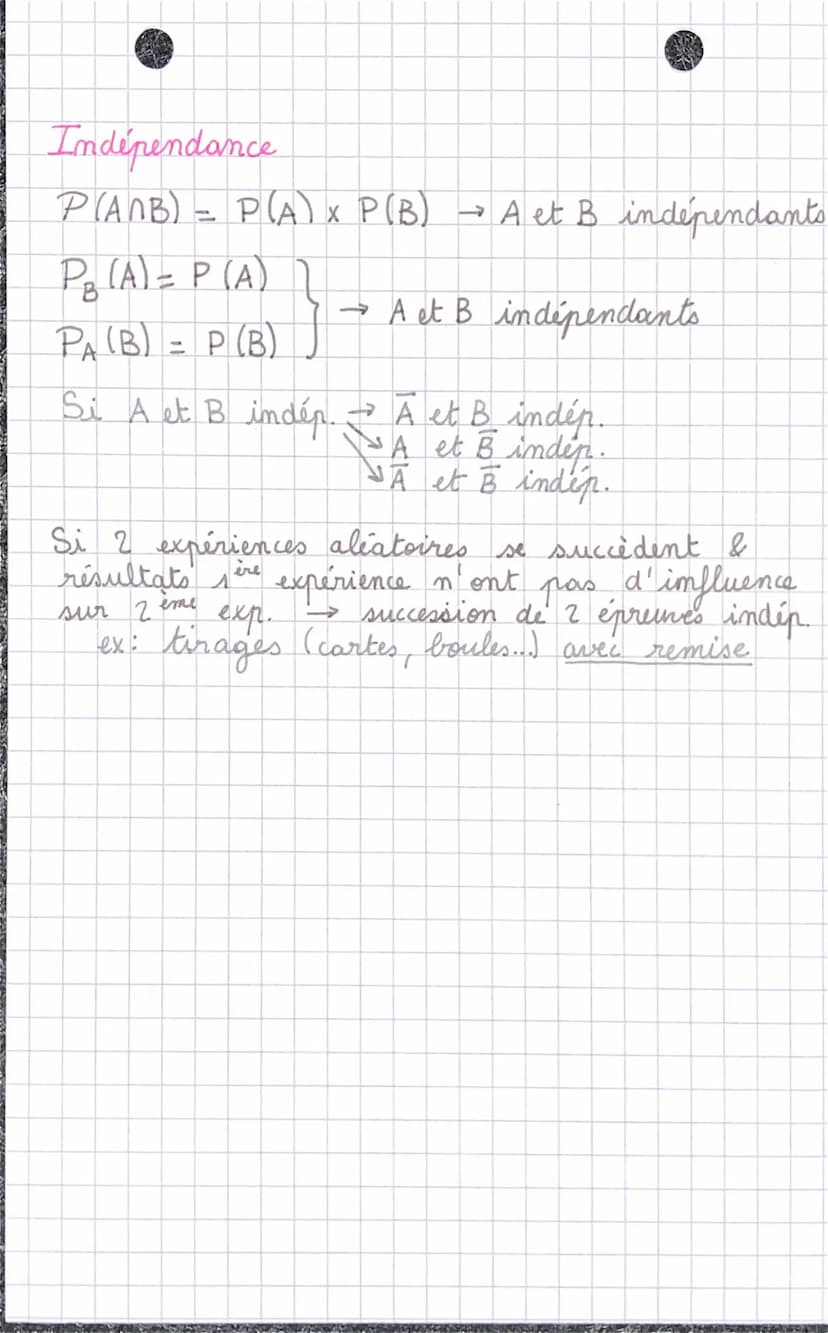 Indépendance
P(A∩B) = P(A) x P(B) → A et B indépendants
P_B (A) = P (A)
} → A et B indépendants
P_A (B) = P (B)
Si A et B indép. → A̅ et B indép.
↘ A et B̅ indép.
↘ A̅ et B̅ indép.
Si 2 expériences aléatoires se succèdent &
résultats 1ère expérience n'ont pas d'influence
sur 2ème exp. → succession de 2 épreuves indép.
ex: tirages (cartes, boules...) avec remise